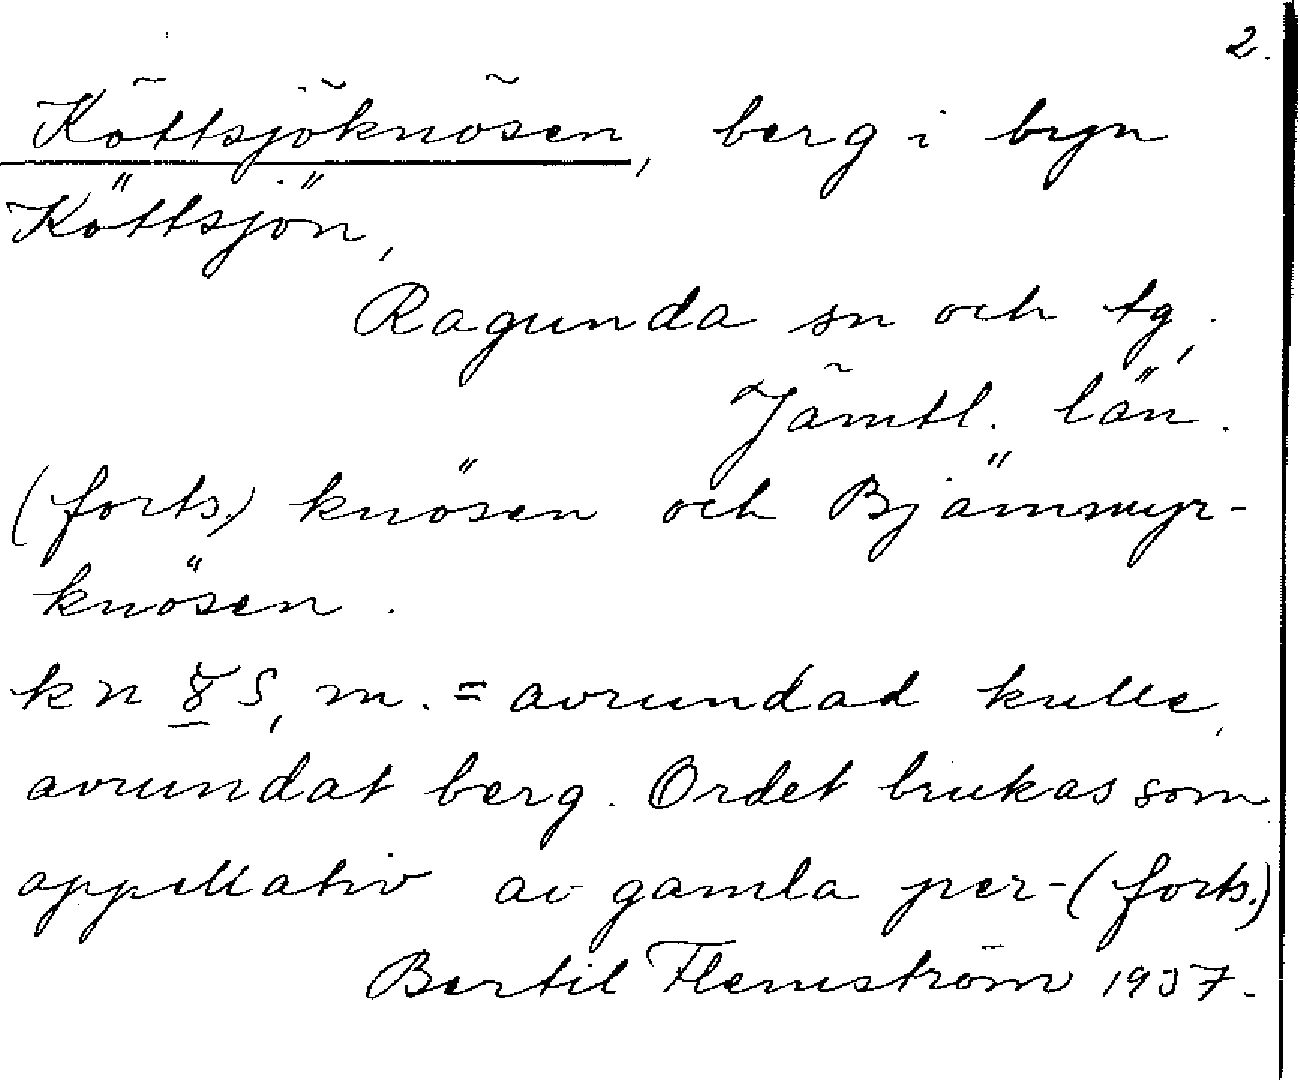 2.
Köttsjöknösen, berg i byn
Köttsjön,
Ragunda sn och tg,
Jämtl. län.
(forts.) knösen och Björnmyr-
knösen.
kn s, m. = avrundad kulle,
avrundat berg. Ordet brukas som
appellativ av gamla per-(forts.)
Bertil Flemström 1957.